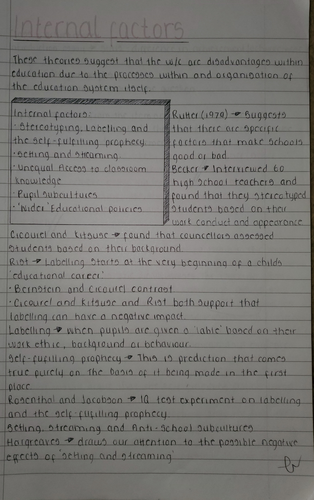 Internal factors
These theories suggest that the w/c are disadvantages within
education due to the processes within and organisation of
the education system itself.
Internal factors:
· Stereotyping, Labelling and
the self-fulfilling prophecy
· Setting and streaming
· Unequal Access to classroom
knowledge
· Pupil subcultures
· 'Wider' Educational policies
Rutter (1979) → Suggests
that there are specific
factors that make schools
good or bad.
Becker → Interviewed 60
high school teachers and
found that they stereotyped
students based on their
work conduct and appearance
Cicourel and Kitsuse → found that councellors assessed
students based on their background.
Rist → Labelling starts at the very beginning of a child's
'educational career'
· Bernstein and Cicourel contrast
· Cicourel and Kitsuse and Rist both support that
labelling can have a negative impact.
Labelling → When pupils are given a 'lable' based on their
work ethic, background or behaviour.
Self-fulfilling prophecy → This is prediction that comes
true purely on the basis of it being made in the first
place.
Rosenthal and Jacobson → IQ test experiment on labelling
and the self-fulfilling prophecy.
Setting, Streaming and Anti-School subcultures
Hargreaves → draws our attention to the possible negative
effects of 'setting and streaming'